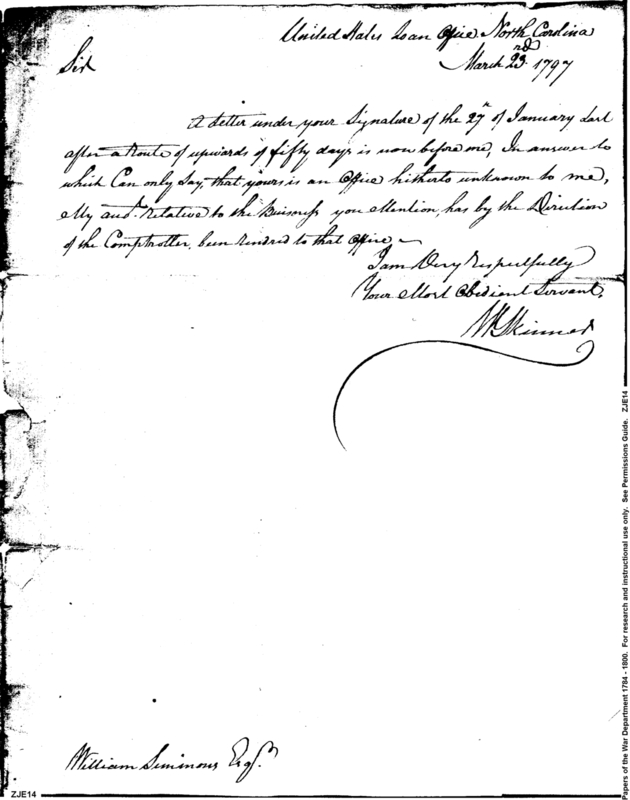 United States Loan Office North Carolina
March 23rd. 1797
Sir
A Letter under your Signature of the 27th of January Last
after a Route of upwards of fifty days is now before me, In answer to
which Can only Say, that yours is an Office hitherto unknown to me,
My Relative to the Buisness you Mention, has by the Direction
of the Comptroller, been Rendred to that Office
I am Very Respectfully
Your Most Obedient Servant,
Wm Skinner
William Simmons Esqr.
ZJE14
Papers of the War Department 1784 - 1800. For research and instructional use only. See Permissions Guide. ZJE14